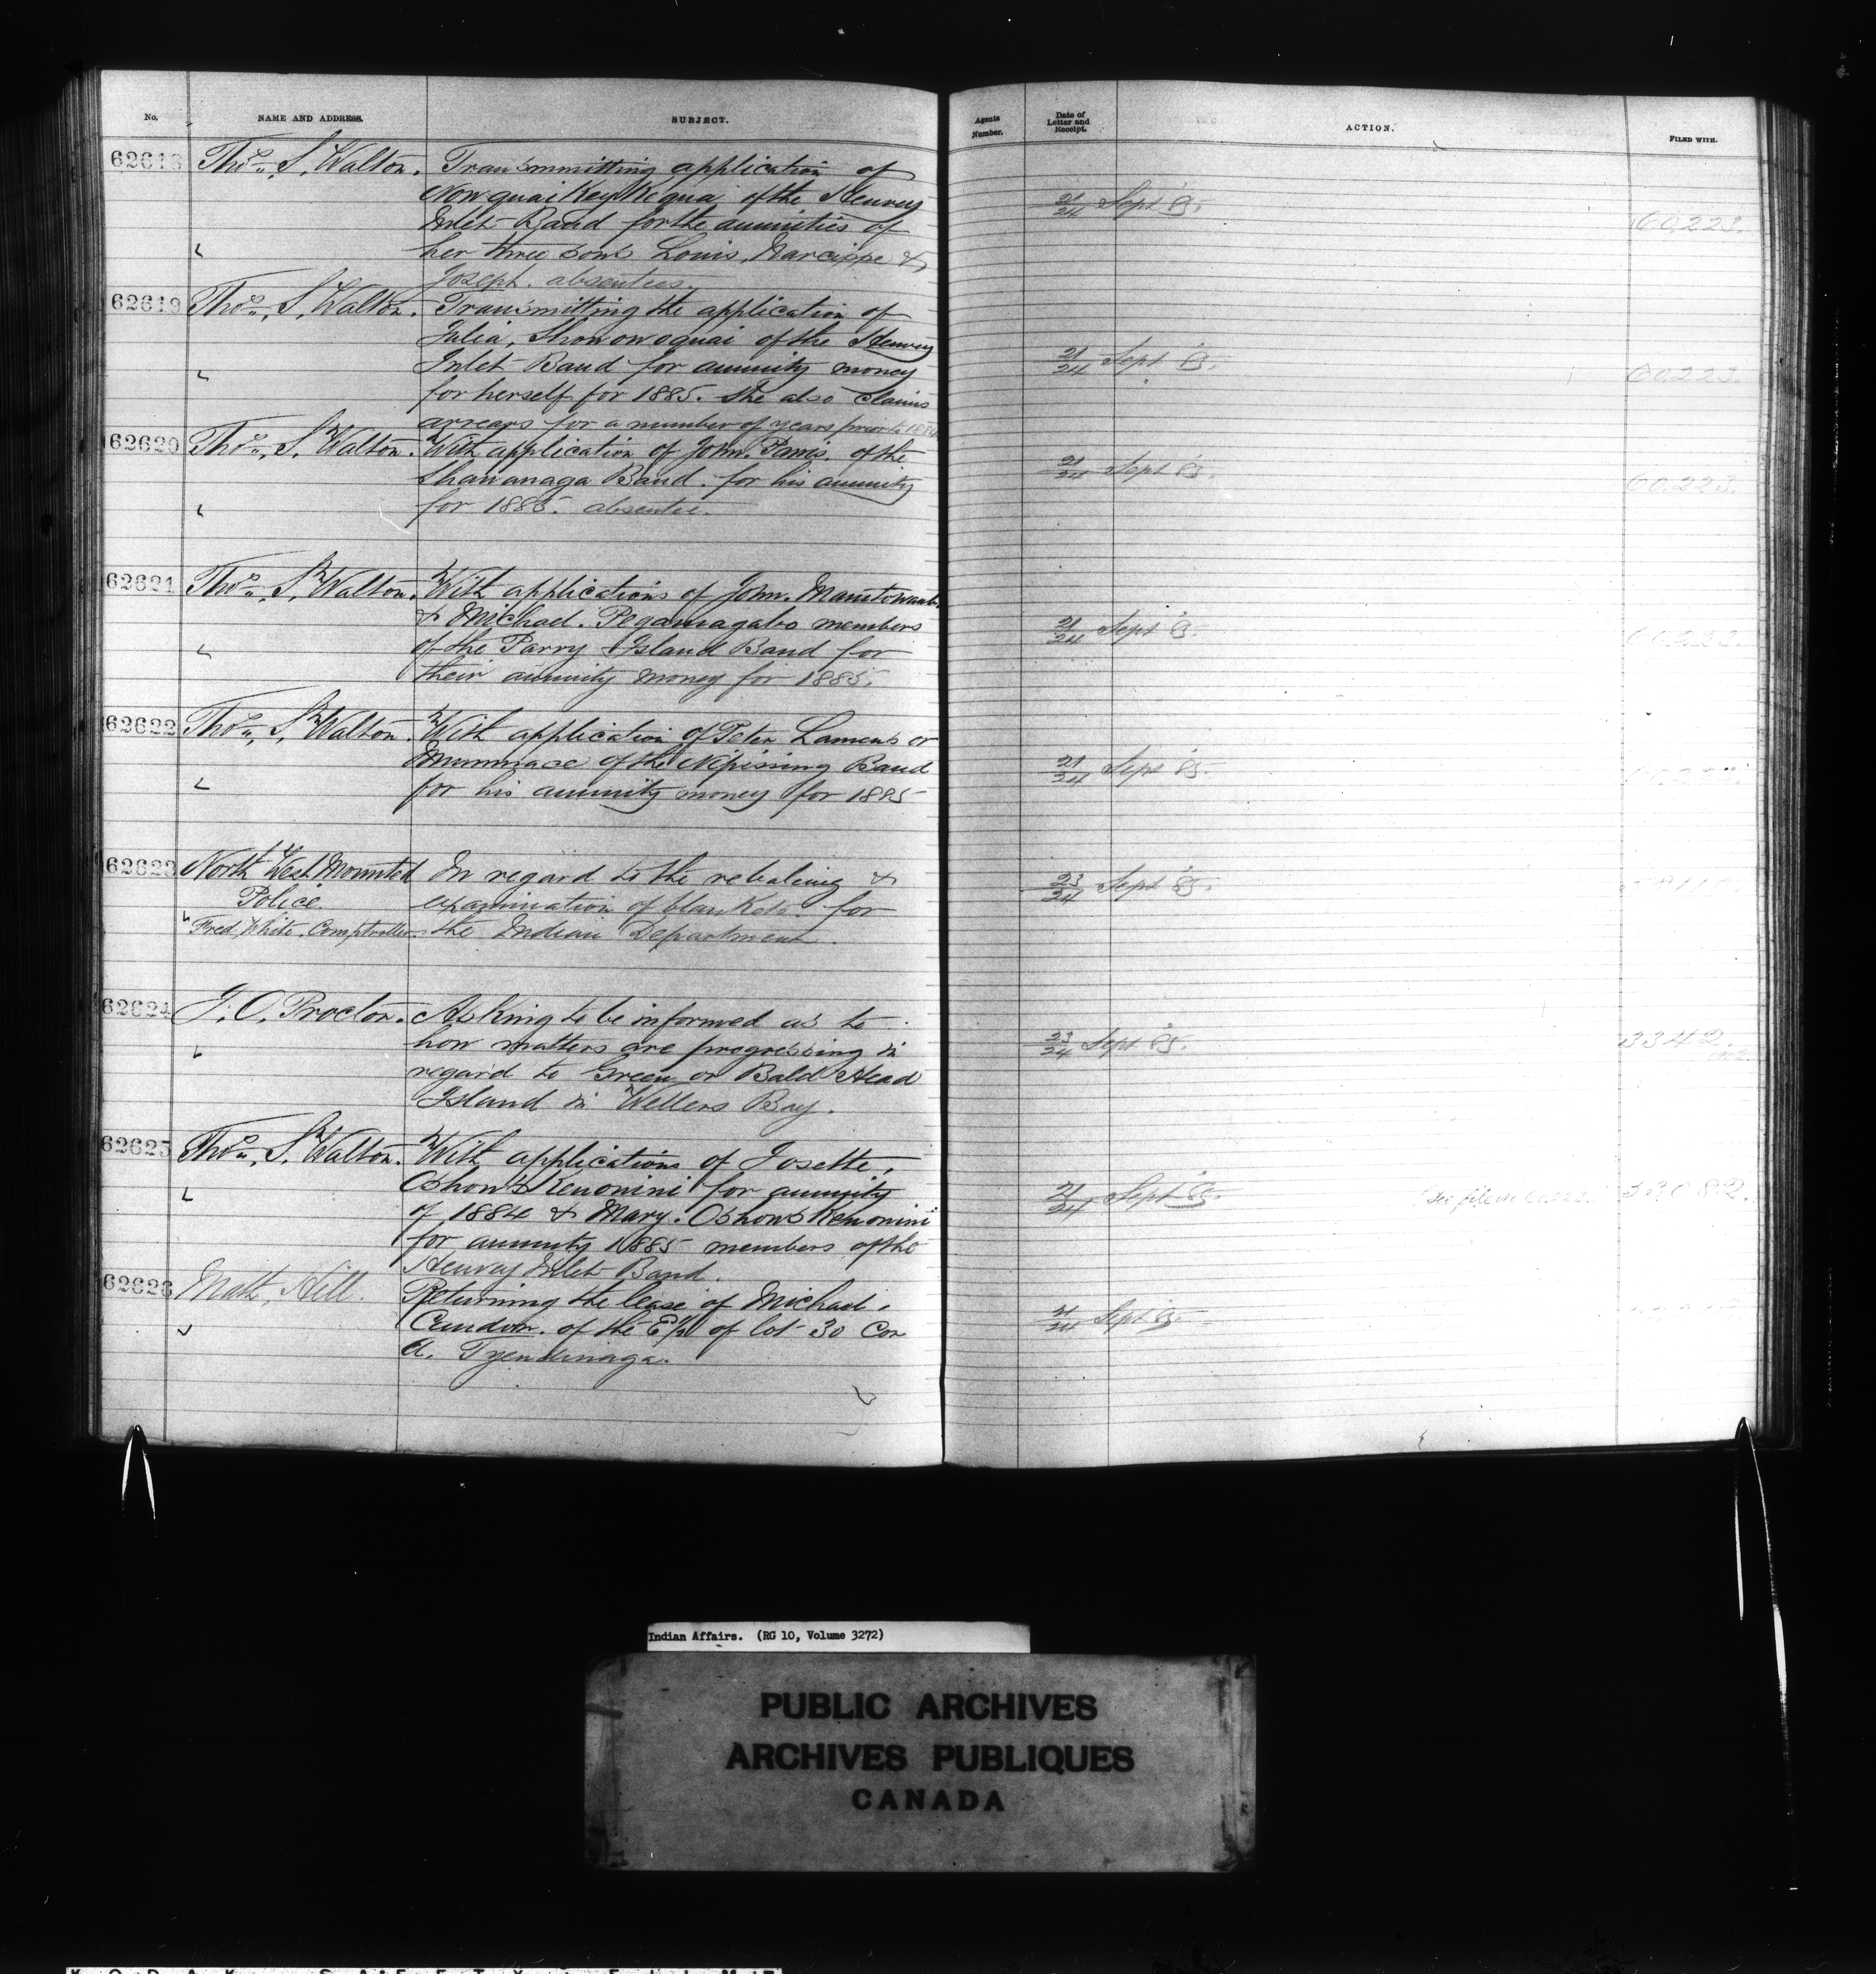 No.
NAME AND ADDRESS.
SUBJECT.
Agents Number.
Date of Letter and Receipt.
ACTION.
FILED WITH.
62618
Thos. S. Walton.
Transmitting application of
of the Henvey
Inlet Band for the annuities of
her three sons Louis, Narcisse &
Joseph. absentees.
21/24 Sept 85.
60,223.
62619
Thos. S. Walton.
Transmitting the application of
Julia, Showonoquai of the Henvey
Inlet Band for annuity money
for herself for 1885. She also claims
arrears for a number of years prior to 1884
21/24 Sept 85.
60,223.
62620
Thos. S. Walton.
With application of John. Parris. of the
Shawanaga Band. for his annuity
for 1885. absentee.
21/24 Sept 85.
60,223.
62621
Thos. S. Walton.
With applications of John.
& Michael. Pegamagabo members
of the Parry Island Band for
their annuity money for 1885.
21/24 Sept 85.
60,223.
62622
Thos. S. Walton.
With application of Peter Lamens or
of the Nipissing Band
for his annuity money for 1885
21/24 Sept 85.
62623
North West Mounted
Police.
Fred, White, Comptroller
In regard to the rebaling &
examination of blankets. for
the Indian Department.
23/24 Sept 85.
62624
J. O. Proctor.
Asking to be informed as to
how matters are progressing in
regard to Green or Bald Head
Island in Wellers Bay.
23/24 Sept 85.
3342.
62625
Thos. S. Walton.
With applications of Josette,
Oshowskenonini for annuity
of 1884 & Mary. Oshowskenonini
for annuity 1885 members of the
Henvey Inlet Band.
21/24 Sept 85.
see file
33082.
62626
Matt, Hill.
Returning the lease of Michael.
of the E½ of lot 30 Con
A. Tyendinaga.
21/24 Sept 85.
Indian Affairs. (RG 10, Volume 3272)
PUBLIC ARCHIVES
ARCHIVES PUBLIQUES
CANADA